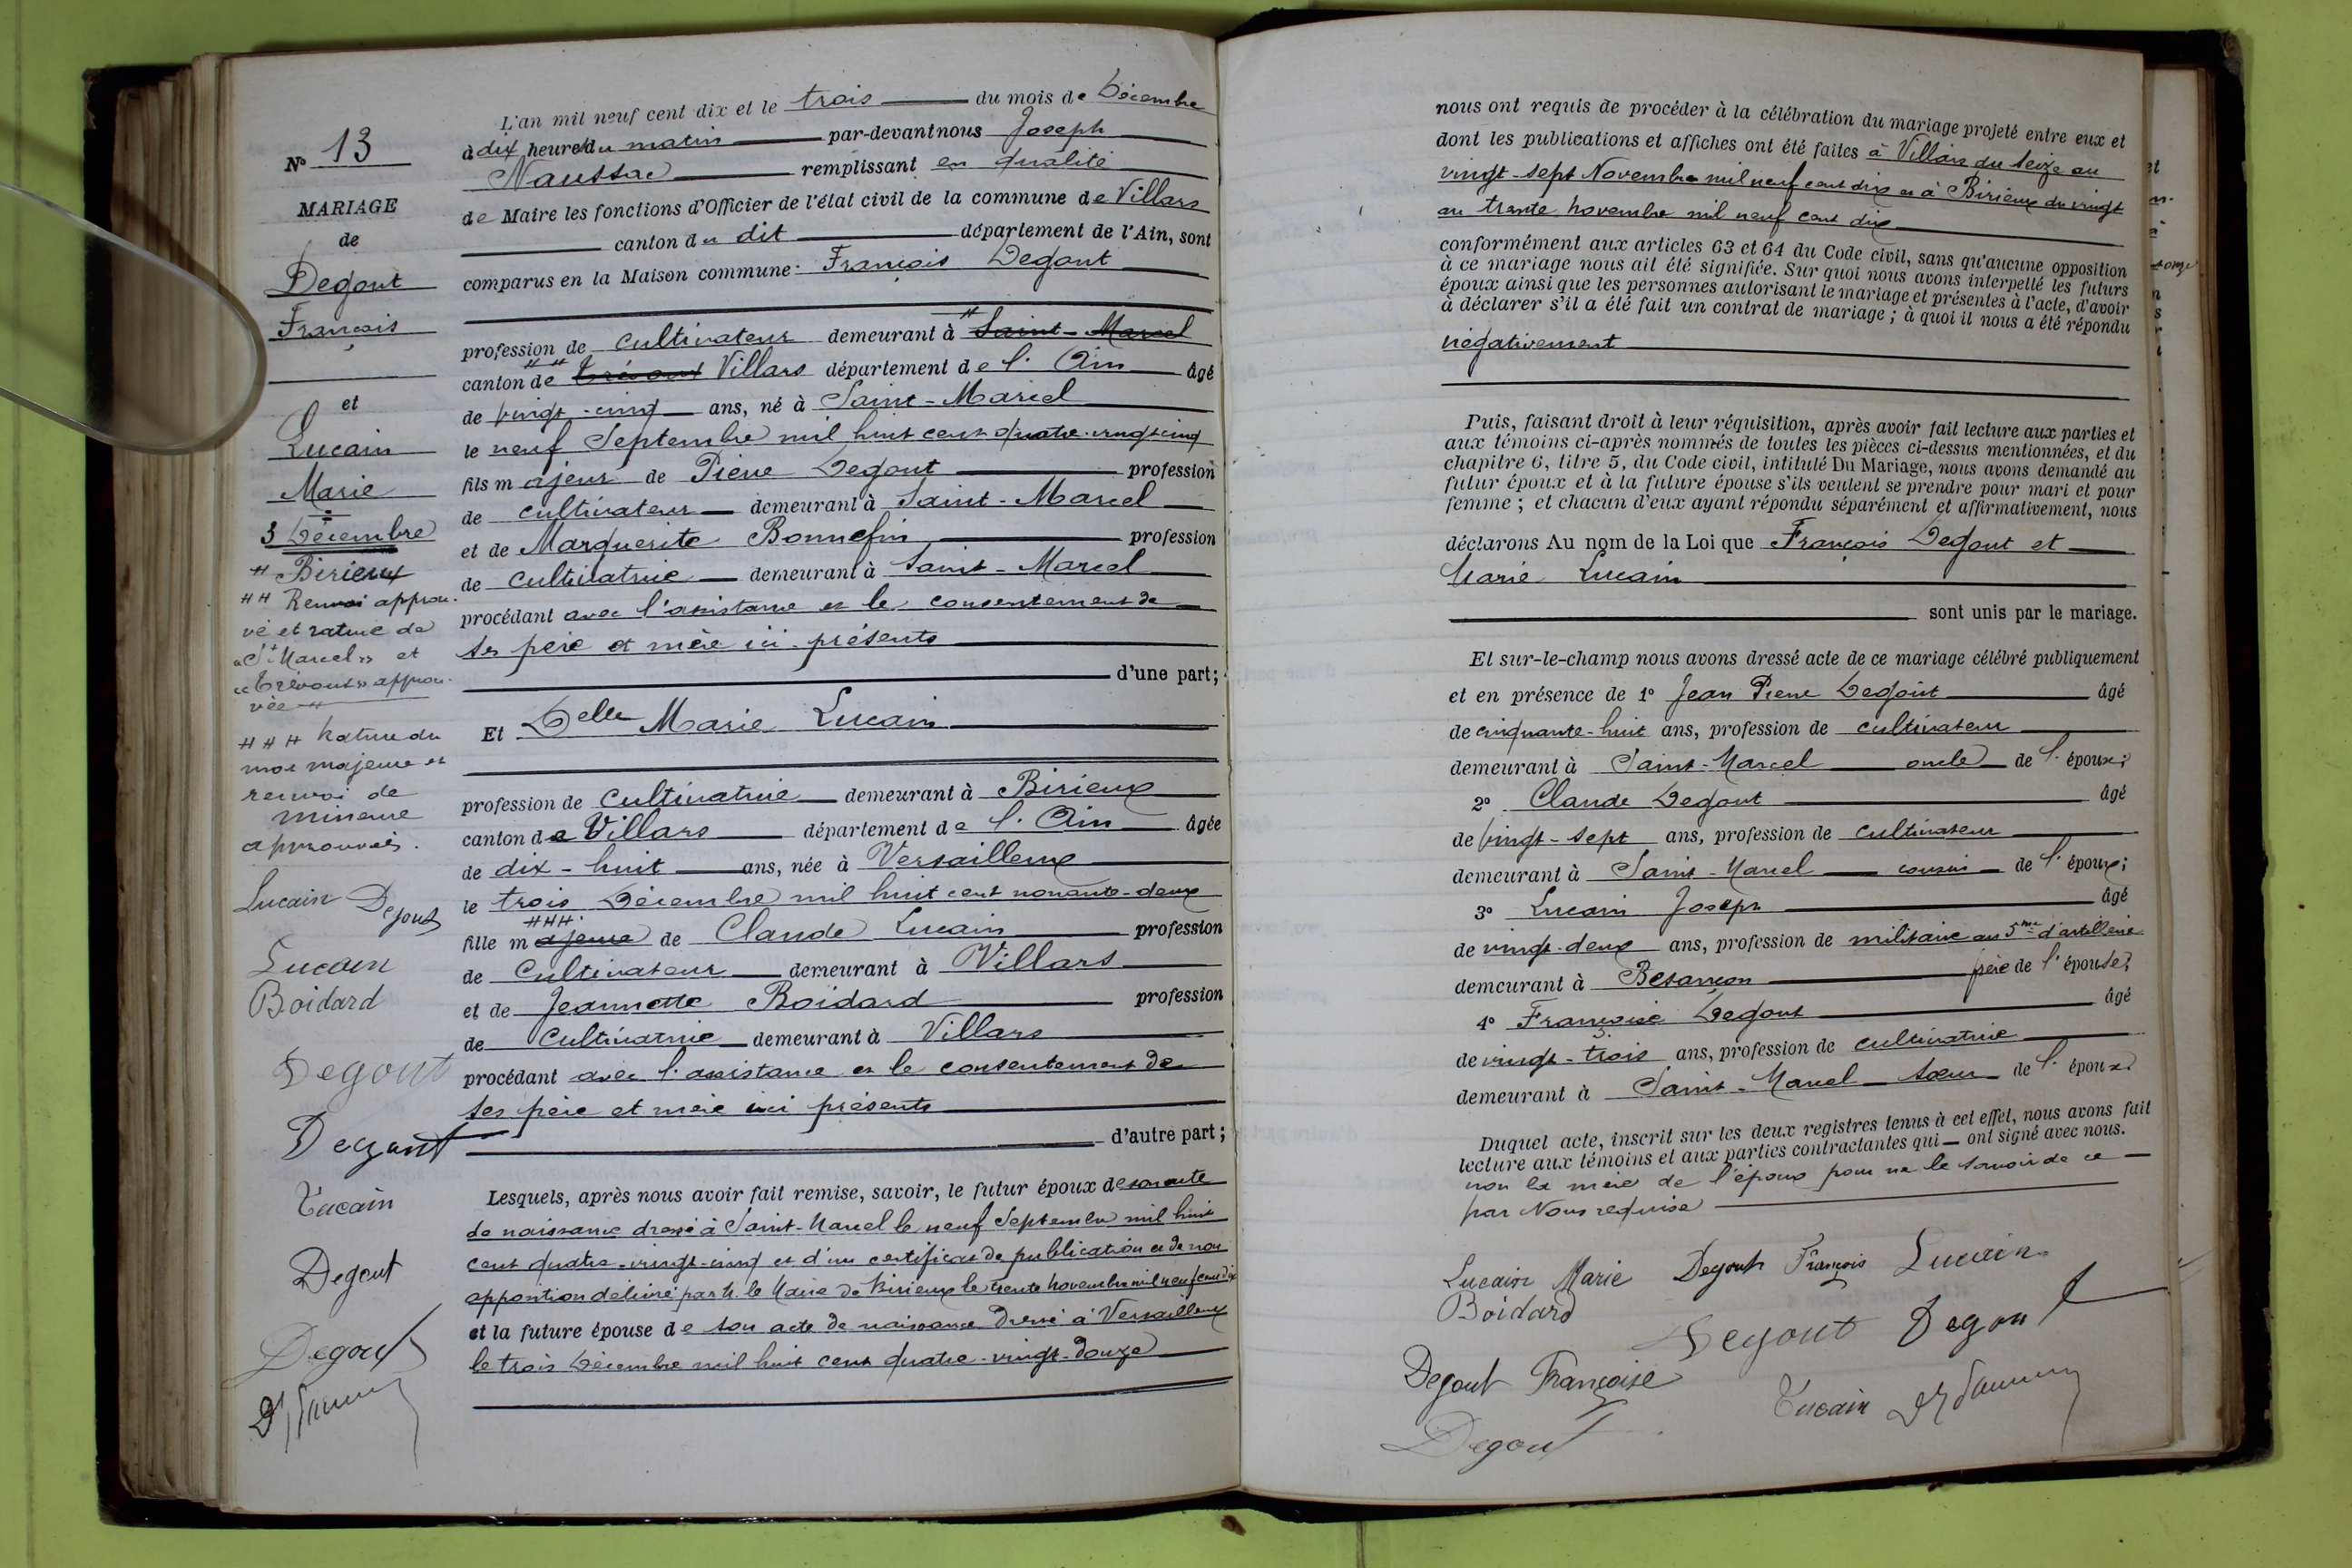 N° 13
MARIAGE
de
Degout
François
et
Lucain
Marie
3 Décembre
# Birieux
## Renvoi approu-
vé et rature de
"St Marcel" et
"Trévoux" approu-
vée
### Rature du
mot majeure et
renvoi de
mineure
approuvés.
Lucain Degout
Lucain
Boidard
Degout
Degout
Lucain
Degout
Degout
L'an mil neuf cent dix et le trois du mois de Décembre
à dix heures du matin par-devant nous Joseph
Naussac remplissant en qualité
de Maire les fonctions d'Officier de l'état civil de la commune de Villars
canton du dit département de l'Ain, sont
comparus en la Maison commune: François Degout
profession de cultivateur demeurant à # Saint-Marcel
canton de ## Trévoux Villars département de l'Ain âgé
de vingt-cinq ans, né à Saint-Marcel
le neuf Septembre mil huit cent quatre-vingt-cinq
fils majeur de Pierre Degout profession
de cultivateur demeurant à Saint-Marcel
et de Marguerite Bonnefin profession
de cultivatrice demeurant à Saint-Marcel
procédant avec l'assistance et le consentement de
ses père et mère ici présents
d'une part;
Et Delle Marie Lucain
profession de cultivatrice demeurant à Birieux
canton de Villars département de l'Ain âgée
de dix-huit ans, née à Versailleux
le trois Décembre mil huit cent nonante-deux
###
fille majeure de Claude Lucain profession
de Cultivateur demeurant à Villars
et de Jeannette Boidard profession
de Cultivatrice demeurant à Villars
procédant avec l'assistance et le consentement de
ses père et mère ici présents
d'autre part;
Lesquels, après nous avoir fait remise, savoir, le futur époux de son acte
de naissance dressé à Saint-Marcel le neuf Septembre mil huit
cent quatre-vingt-cinq et d'un certificat de publication et de non
opposition délivré par M. le Maire de Birieux le trente novembre mil neuf cent dix
et la future épouse de son acte de naissance dressé à Versailleux
le trois Décembre mil huit cent quatre-vingt-douze
nous ont requis de procéder à la célébration du mariage projeté entre eux et
dont les publications et affiches ont été faites à Villars du seize au
vingt-sept Novembre mil neuf cent dix et à Birieux du vingt
au trente novembre mil neuf cent dix
conformément aux articles 63 et 64 du Code civil, sans qu'aucune opposition
à ce mariage nous ait été signifiée. Sur quoi nous avons interpellé les futurs
époux ainsi que les personnes autorisant le mariage et présentes à l'acte, d'avoir
à déclarer s'il a été fait un contrat de mariage; à quoi il nous a été répondu
négativement
Puis, faisant droit à leur réquisition, après avoir fait lecture aux parties et
aux témoins ci-après nommés de toutes les pièces ci-dessus mentionnées, et du
chapitre 6, titre 5, du Code civil, intitulé Du Mariage, nous avons demandé au
futur époux et à la future épouse s'ils veulent se prendre pour mari et pour
femme; et chacun d'eux ayant répondu séparément et affirmativement, nous
déclarons Au nom de la Loi que François Degout et
Marie Lucain
sont unis par le mariage.
Et sur-le-champ nous avons dressé acte de ce mariage célébré publiquement
et en présence de 1° Jean Pierre Degout âgé
de cinquante-huit ans, profession de cultivateur
demeurant à Saint-Marcel oncle de l'époux;
2° Claude Degout âgé
de vingt-sept ans, profession de cultivateur
demeurant à Saint-Marcel cousin de l'époux;
3° Lucain Joseph âgé
de vingt-deux ans, profession de militaire au 5me d'artillerie
demeurant à Besançon frère de l'épouse;
4° Françoise Degout âgé
de vingt-trois ans, profession de cultivatrice
demeurant à Saint-Marcel sœur de l'époux
Duquel acte, inscrit sur les deux registres tenus à cet effet, nous avons fait
lecture aux témoins et aux parties contractantes qui ont signé avec nous.
non la mère de l'époux pour ne le savoir de ce
par Nous requise
Lucain Marie Degout François Lucain
Boidard Degout Degout
Degout Françoise Lucain
Degout